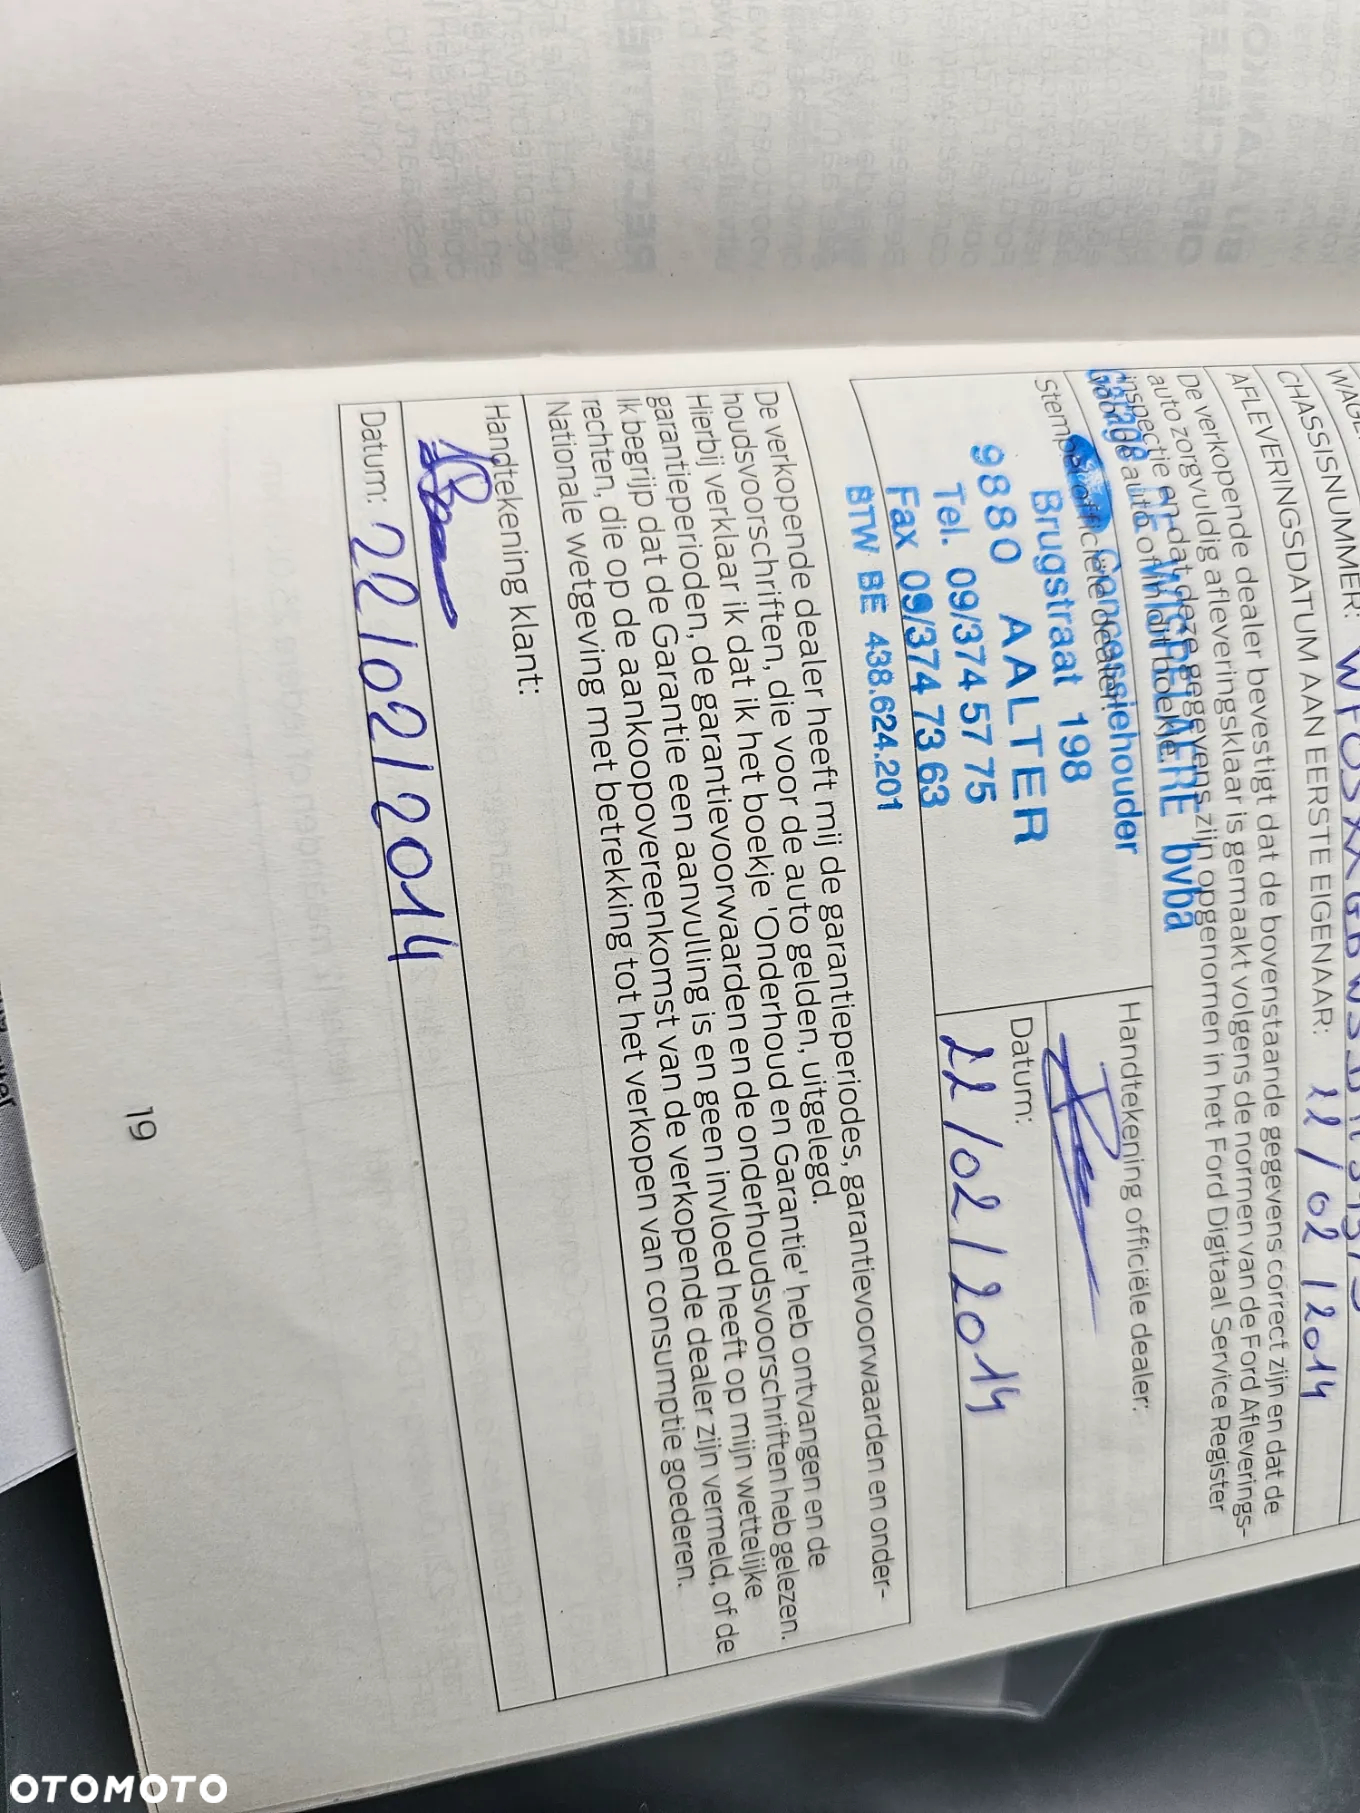 CHASSISNUMMER:
AFLEVERINGSDATUM AAN EERSTE EIGENAAR: 22/02/2014
De verkopende dealer bevestigt dat de bovenstaande gegevens correct zijn en dat de
auto zorgvuldig afleveringsklaar is gemaakt volgens de normen van de Ford Afleverings-
inspectie en dat deze gegevens zijn opgenomen in het Ford Digitaal Service Register
voor de auto of in dit boekje.
Stempel officiële dealer:
Garage bvba
Concessiehouder
Brugstraat 198
9880 AALTER
Tel. 09/374 57 75
Fax 09/374 73 63
BTW BE 438.624.201
Handtekening officiële dealer:
Datum:
22/02/2014
De verkopende dealer heeft mij de garantieperiodes, garantievoorwaarden en onder-
houdsvoorschriften, die voor de auto gelden, uitgelegd.
Hierbij verklaar ik dat ik het boekje 'Onderhoud en Garantie' heb ontvangen en de
garantieperioden, de garantievoorwaarden en de onderhoudsvoorschriften heb gelezen.
Ik begrijp dat de Garantie een aanvulling is en geen invloed heeft op mijn wettelijke
rechten, die op de aankoopovereenkomst van de verkopende dealer zijn vermeld, of de
Nationale wetgeving met betrekking tot het verkopen van consumptie goederen.
Handtekening klant:
Datum: 22/02/2014
19
OTOMOTO